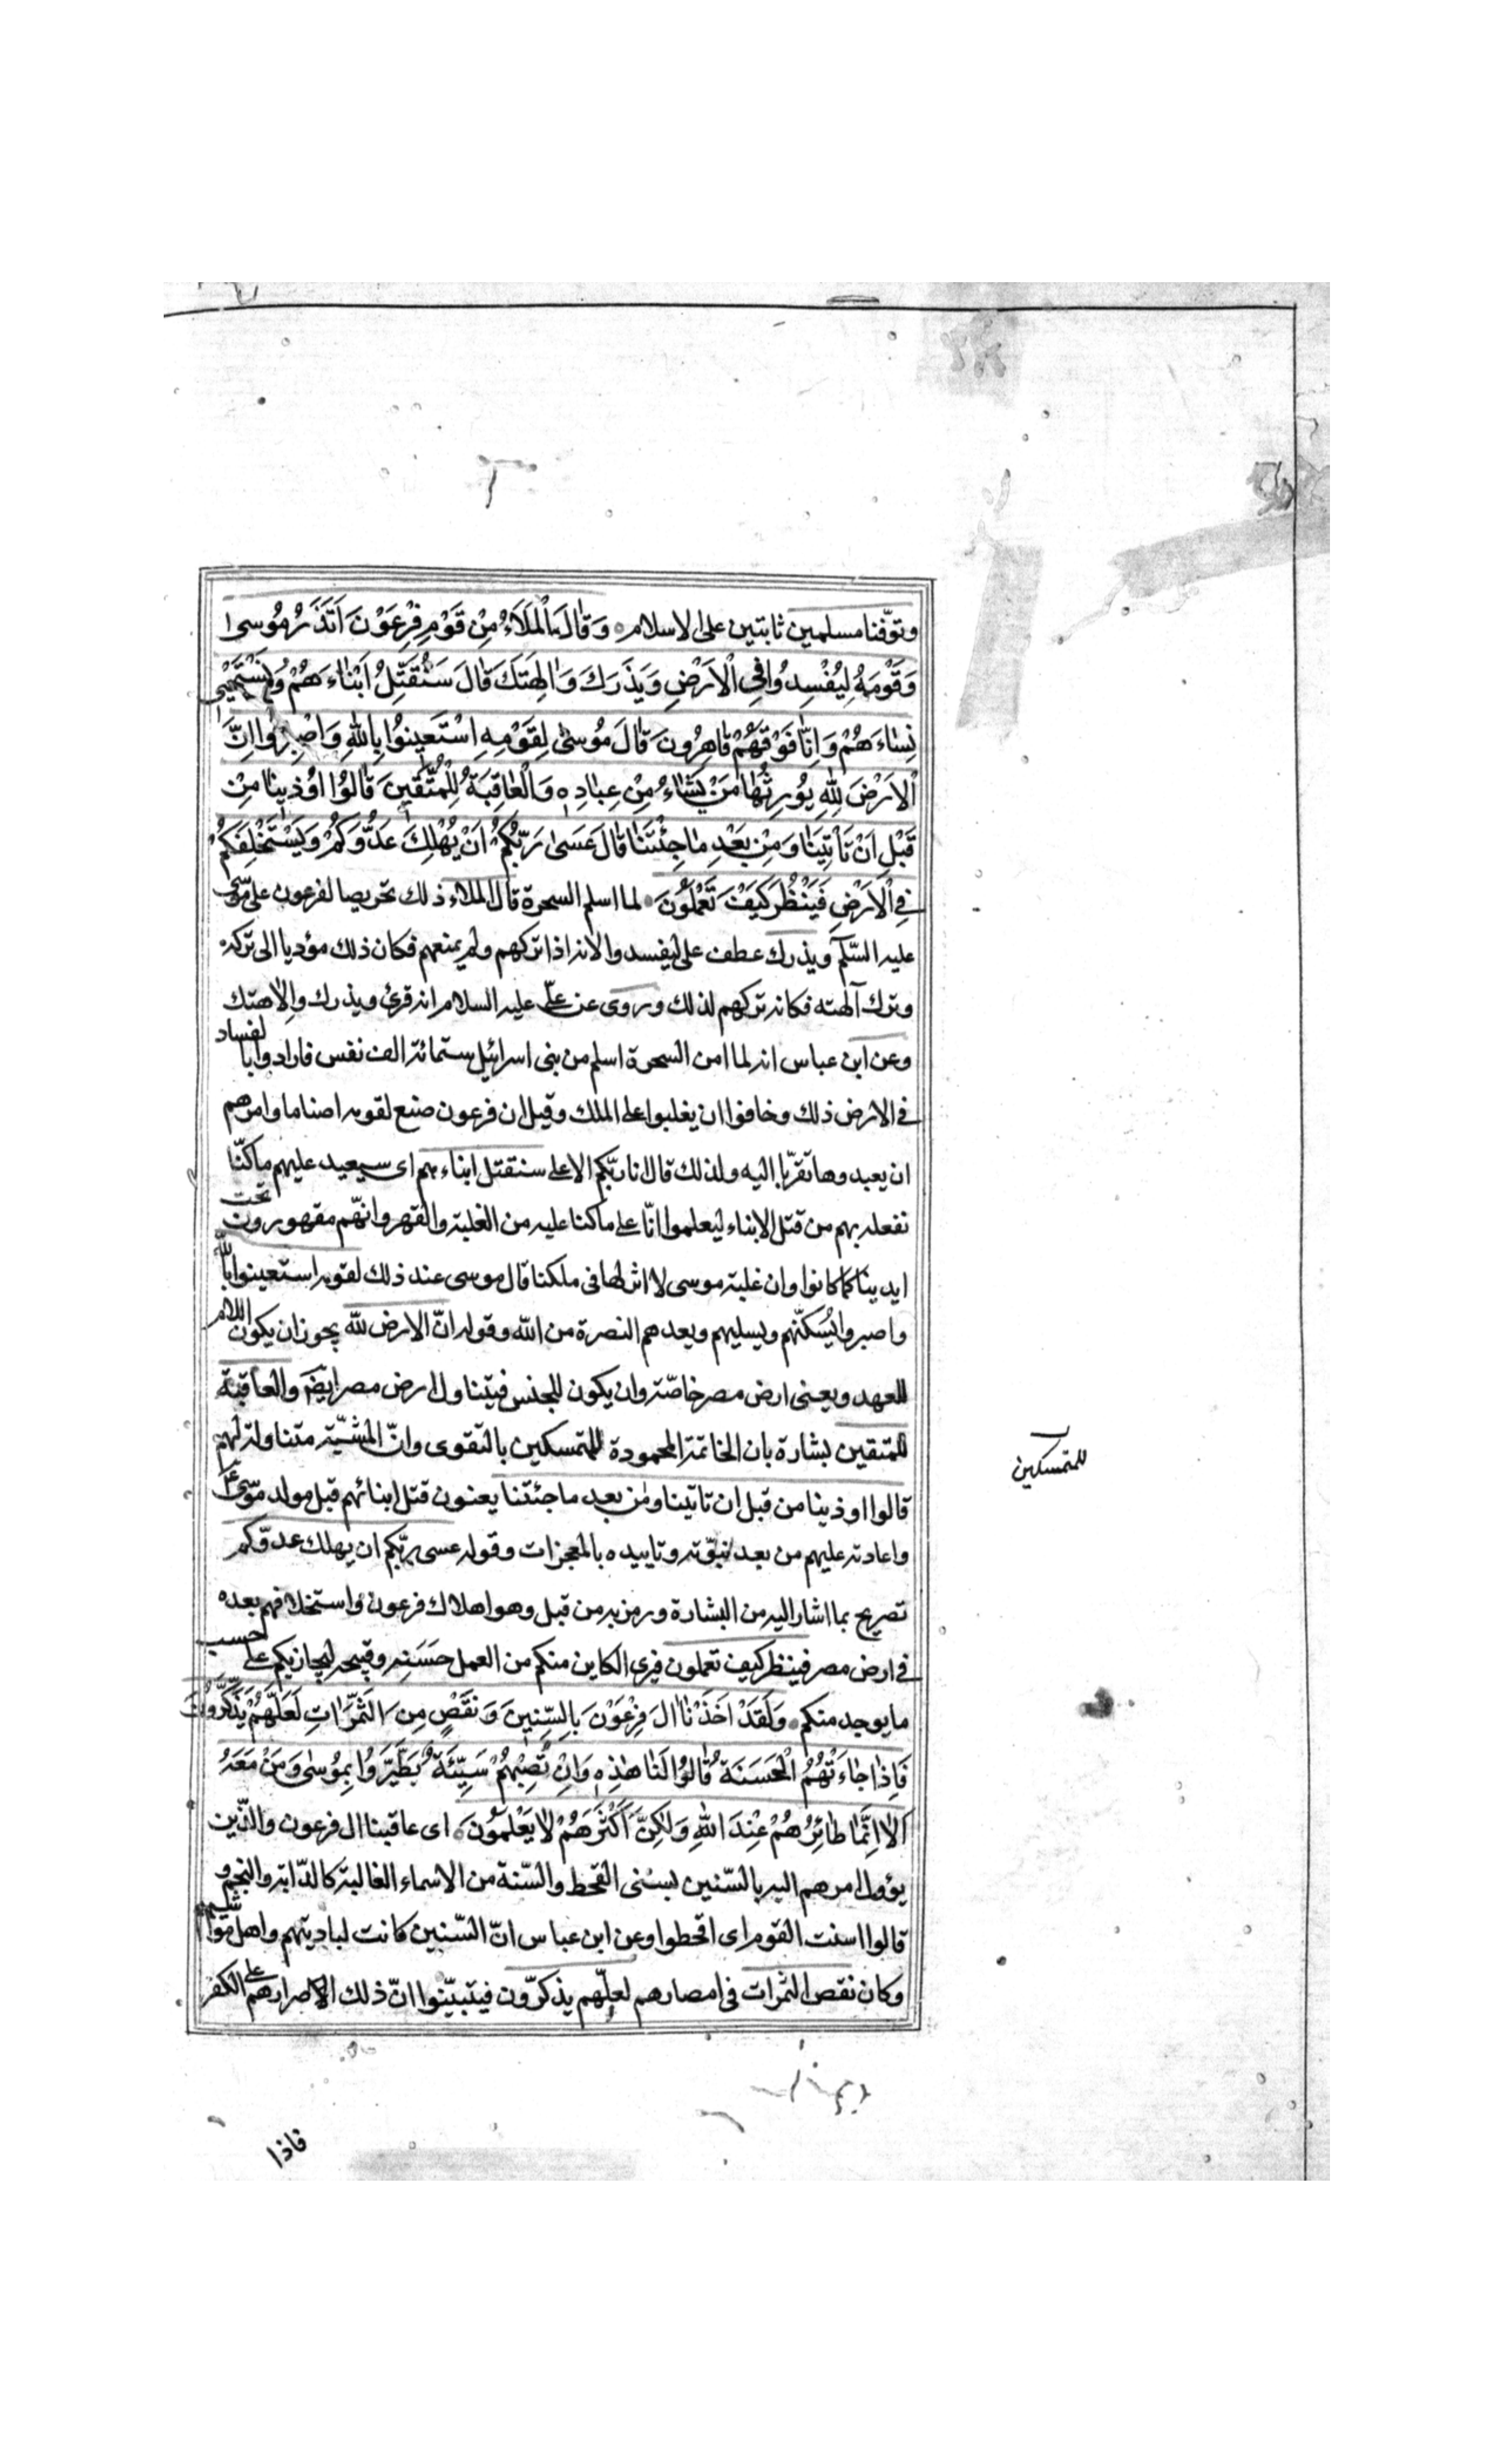 وتوفّنا مسلمين ثابتين على الاسلام وَقٰالَ الْمَلَاءُ مِنْ قَوْمِ فِرْعَوْنَ اَتَذَرُ مُوسىٰ
وَقَوْمَهُ لِيُفْسِدُوا فِي الْاَرْضِ وَيَذَرَكَ وَاٰلِهَتَكَ قٰالَ سَنُقَتِّلُ اَبْنٰاءَهُمْ وَنَسْتَحْيي
نِسٰاءَهُمْ وَاِنّٰا فَوْقَهُمْ قٰاهِرُونَ قٰالَ مُوسىٰ لِقَوْمِهِ اسْتَعِينُوا بِاللّٰهِ وَاصْبِرُوا اِنَّ
الْاَرْضَ لِلّٰهِ يُورِثُهٰا مَنْ يَشٰاءُ مِنْ عِبٰادِهِ وَالْعٰاقِبَةُ لِلْمُتَّقِينَ قٰالُوا اُوذِينٰا مِنْ
قَبْلِ اَنْ تَأْتِيَنٰا وَمِنْ بَعْدِ مٰا جِئْتَنٰا قٰالَ عَسىٰ رَبُّكُمْ اَنْ يُهْلِكَ عَدُوَّكُمْ وَيَسْتَخْلِفَكُمْ
فِي الْاَرْضِ فَيَنْظُرَ كَيْفَ تَعْمَلُونَ لما اسلم السحرة قال الملاء ذلك تحريصا لفرعون على موسى
عليه السّلم ويذرك عطف على ليفسدوا لانه اذا تركهم ولم يمنعهم فكان ذلك مؤديا الى تركه
وترك آلهته فكانه تركهم لذلك وروى عن علىّ عليه السلام انه قرئ ويذرك والاهتك
وعن ابن عباس انه لما امن السحرة اسلم من بنى اسرائيل ستمائة الف نفس فارادوا بالفساد
فى الارض ذلك وخافوا ان يغلبوا على الملك وقيل ان فرعون صنع لقومه اصناما وامرهم
ان يعبدوها تقرّبا اليه ولذلك قال انا ربّكم الاعلى سنقتل ابناءهم اى سيعيد عليهم ما كنّا
نفعله بهم من قتل الابناء ليعلموا انّا على ما كنا عليه من الغلبة والقهر وانّهم مقهورون تحت
ايدينا كما كانوا وان غلبة موسى لا اثر لها فى ملكنا قال موسى عند ذلك لقومه استعينوا بالله
واصبروا يُسَكنّهم ويسليهم ويعدهم النصرة من اللّه وقوله انّ الارض للّه يجوز ان يكون اللام
للعهد ويعنى ارض مصر خاصّة وان يكون للجنس فيتناول ارض مصر ايضا والعاقبة
للمتقين بشارة بان الخاتمة المحمودة للمتمسكين بالتقوى وانّ المشيّة متناولة لهم
قالوا اوذينا من قبل ان تاتينا ومن بعد ما جئتنا يعنون قتل ابنائهم قبل مولد موسى ع
واعادته عليهم من بعد نبوّته وتاييده بالمعجزات وقوله عسى ربّكم ان يهلك عدوّكم
تصريح بما اشار اليه من البشارة ورمز به من قبل وهو اهلاك فرعون واستخلافهم بعده
فى ارض مصر فينظر كيف تعملون فيرى الكاين منكم من العمل حَسَنِه وقبيحه ليجازيكم على حسب
ما يوجد منكم وَلَقَدْ اَخَذْنٰا اٰلَ فِرْعَوْنَ بِالسِّنِينَ وَنَقْصٍ مِنَ الثَّمَرٰاتِ لَعَلَّهُمْ يَذَّكَّرُونَ
فَاِذٰا جٰاءَتْهُمُ الْحَسَنَةُ قٰالُوا لَنٰا هٰذِهِ وَاِنْ تُصِبْهُمْ سَيِّئَةٌ يَطَّيَّرُوا بِمُوسىٰ وَمَنْ مَعَهُ
اَلٰا اِنَّمٰا طٰائِرُهُمْ عِنْدَ اللّٰهِ وَلٰكِنَّ اَكْثَرَهُمْ لٰا يَعْلَمُونَ اى عاقبنا ال فرعون والذّين
يؤول امرهم اليه بالسّنين لسنى القحط والسّنة من الاسماء الغالبة كالدّابة والنجم و
قالوا اسنت القوم اى اقحطوا وعن ابن عباس انّ السّنين كانت لباديتهم واهل مواشيهم
وكان نقص الثمرات فى امصارهم لعلّهم يذكرّون فيتبيّنوا انّ ذلك لاصرارهم على الكفر
للمتمسكين
فاذا